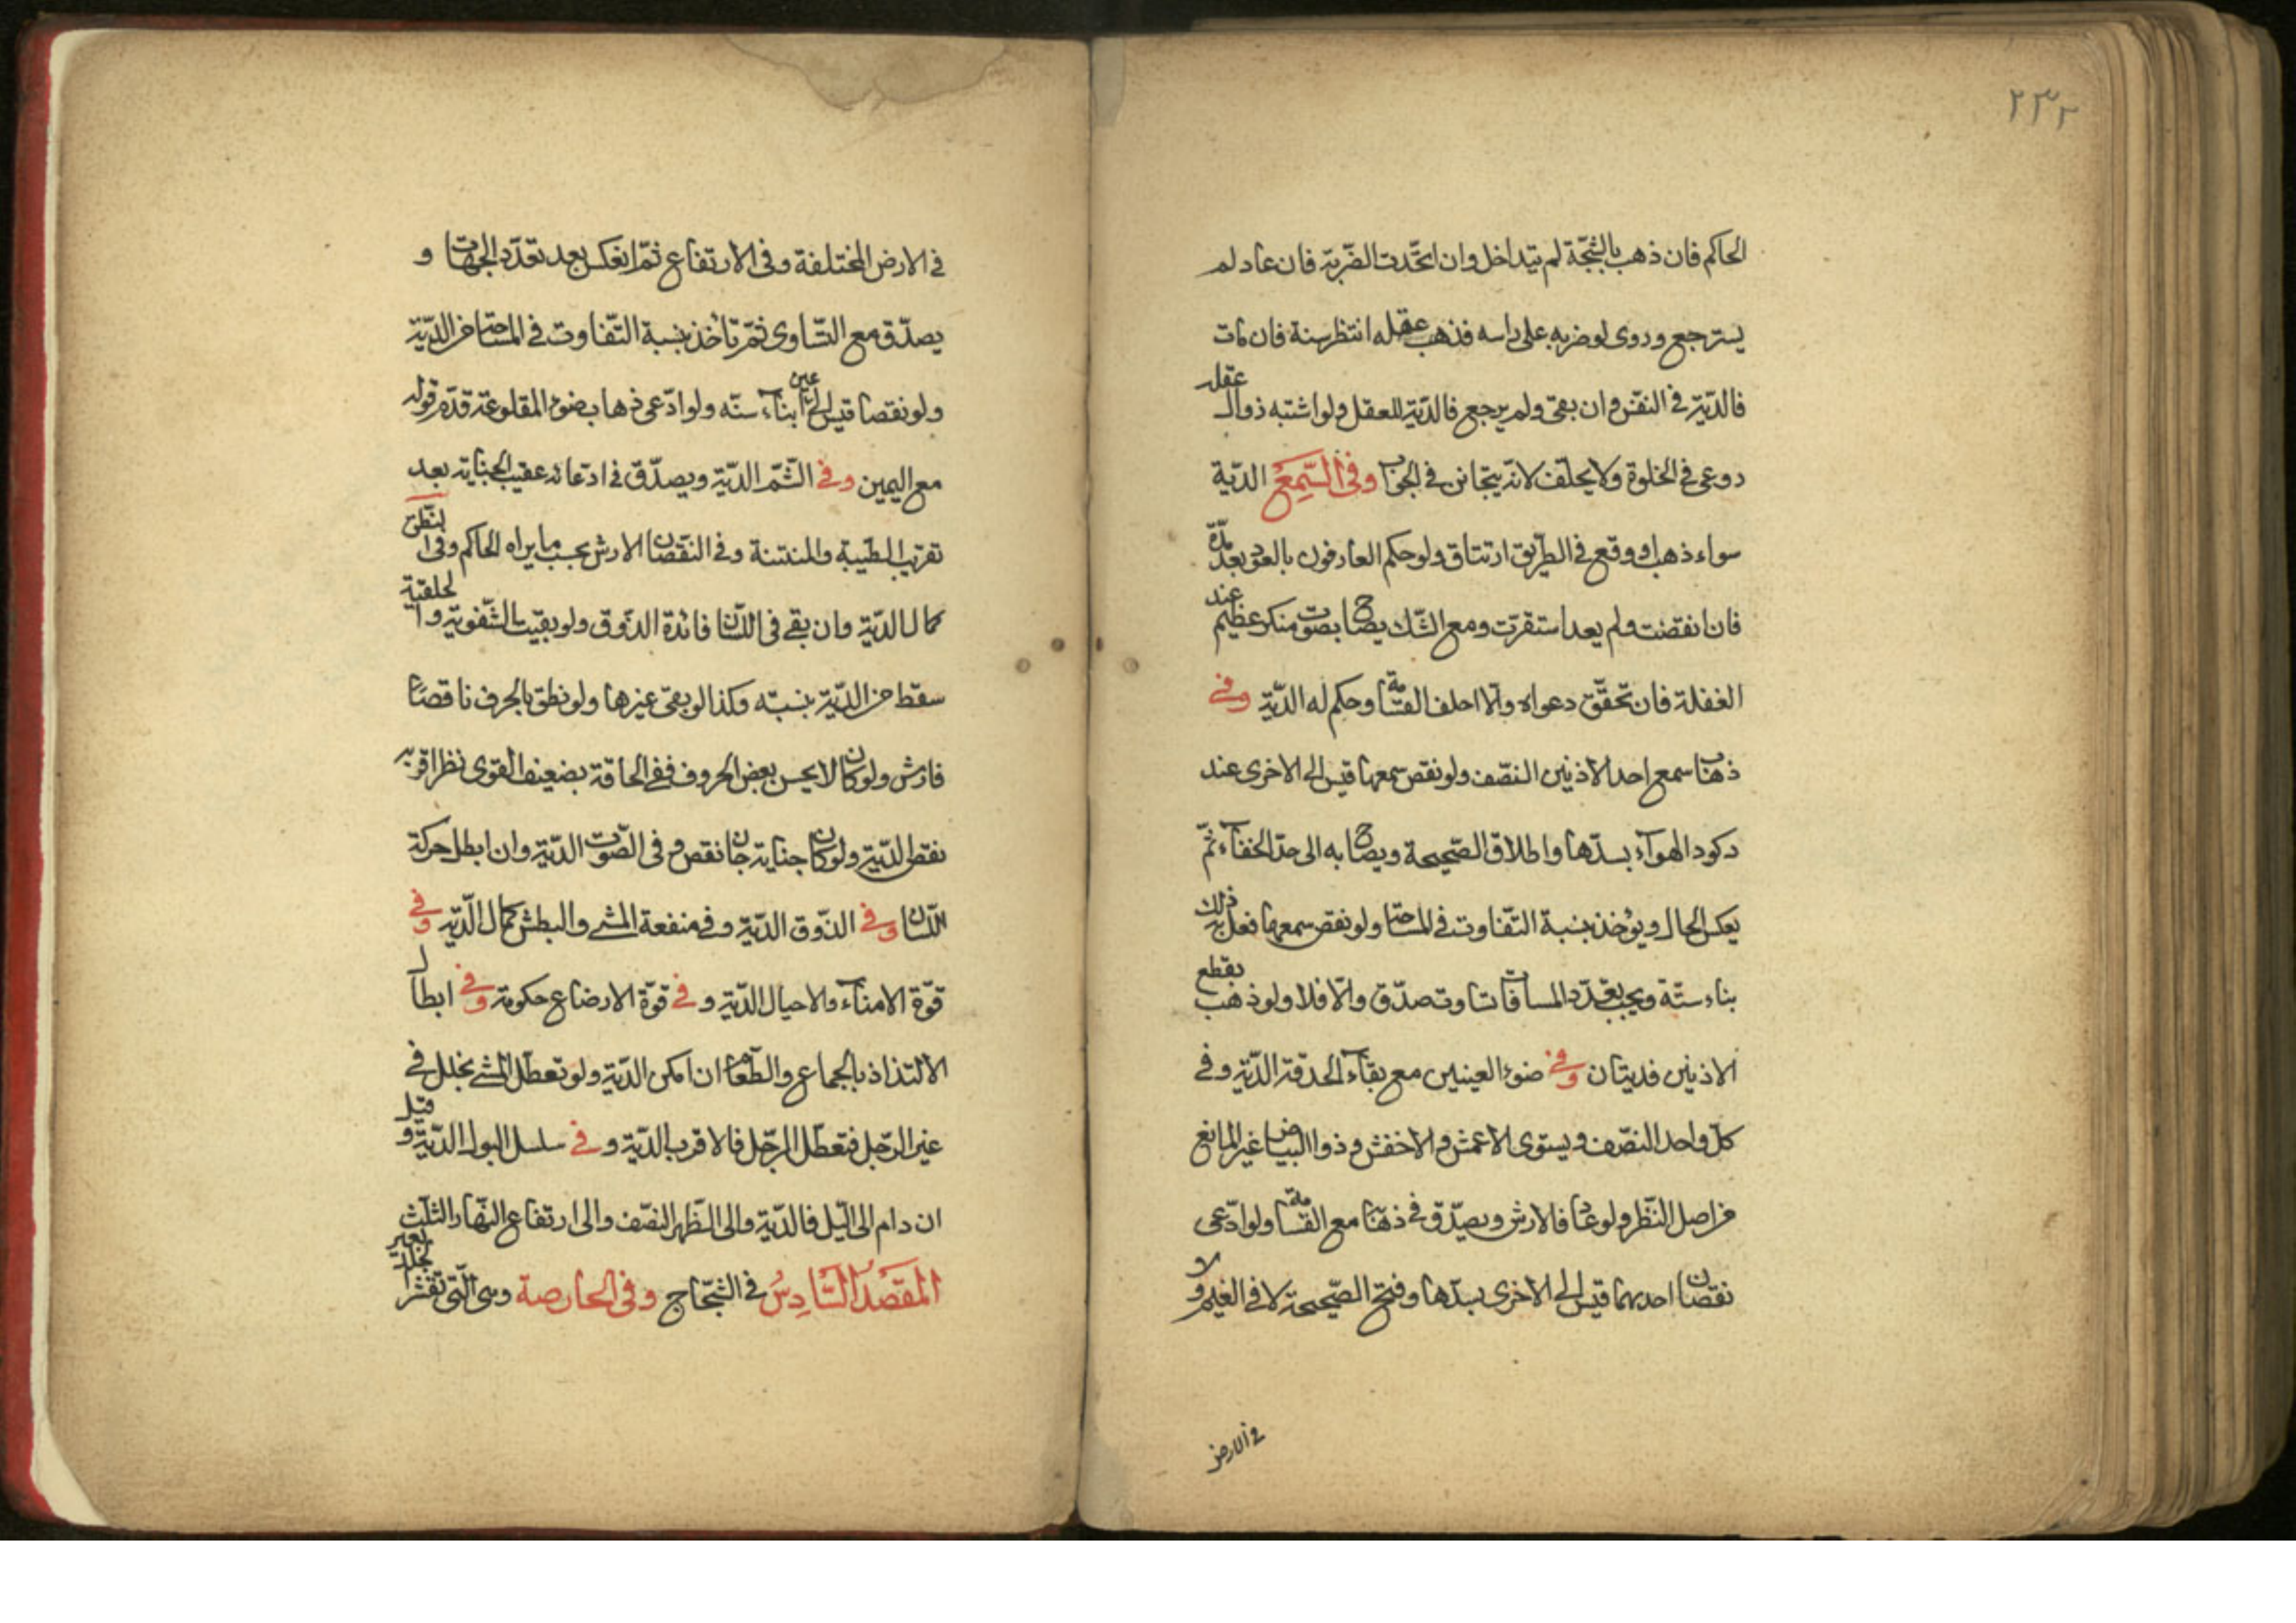 ٢٣٢
الحاكم فان ذهب بالشجّة لم يتداخل وان اتّحدت الضّربة فان عاد لم
يسترجع وروى لو ضربه على راسه فذهب عقله انتظر سنة فان مات
فالدّية في النفس وان بقى ولم يرجع فالدّية للعقل ولو اشتبه زوال عقله
روعى في الخلوة ولا يحلف لانّه يتجانن في الجواب وفى السّمع الدّية
سواء ذهب او وقع في الطريق ارتتاق ولو حكم العارفون بالعود بعد مدّة
فان انقضت ولم يعد استقرّت ومع الشّك يصاح بصوت منكر عظيم عند
الغفلة فان تحقّق دعواه والّا احلف القسامة وحكم له الدّية وفى
ذهاب سمع احد الاذنين النصف ولو نقص سمعها قيس الى الاخرى عند
ركود الهوآء بسدّها واطلاق الصّحيحة ويصاح به الى حدّ الخفآء ثمّ
يعكس الحال ويؤخذ بنسبة التّفاوت في المساحة ولو نقص سمعهما فعل ذلك به
بناء سنّه ويجب تعدّد المسافات فان تساوت صدّق والّا فلا ولو ذهب بقطع
الاذنين فديتان وفى ضوء العينين مع بقآء الحدقة الدّية وفى
كلّ واحد النصف ويستوى الاعمش والاخفش وذو البياض غير المانع
من اصل النّظر ولو عاد فالارش ويصدّق في ذهابه مع القسامة ولو ادّعى
نقصان احدهما قيس الى الاخرى بسدّها وفتح الصّحيحة لا في الغيم ولا
في الارض
في الارض المختلفة وفى الارتفاع ثمّ انعكس بعد تعدّد الجهات و
يصدّق مع التّساوى ثمّ تأخذ بنسبة التّفاوت في المساحة من الدّية
ولو نقصا قيس الى عين ابنآء سنّه ولو ادّعى ذهاب ضوء المقلوعة قدّم قوله
مع اليمين وفى الشّم الدّية ويصدّق في ادّعائه عقيب الجناية بعد
تقريب الطيبة والمنتنة وفى النقصان الارش بحسب ما يراه الحاكم وفى النّطق
كمال الدّية وان بقى في اللّسان فائدة الذّوق ولو بقيت الشّفوية والحلقية
سقط من الدّية بنسبته وكذا لو بقى غيرها ولو نطق بالحرف ناقصا
فارش ولو كان لا يحسن بعض الحروف ففى الحاقه بضعيف القوى نظر اقربه
نقص الدّية ولو كان جناية جان نقص وفى الصّوت الدّية وان ابطل حركة
اللّسان وفى الذّوق الدّية وفى منفعة المشى والبطش كمال الدّية وفى
قوّة الامنآء والاحبال الدّية وفى قوّة الارضاع حكومة وفى ابطال
الالتذاذ بالجماع والطّعام ان امكن الدّية ولو تعطّل المشى بخلل في
غير الرّجل فتعطّل الرّجل فالاقرب الدّية وفى سلسل البول الدّية وقيل
ان دام الى اللّيل فالدّية والى الظّهر النصف والى ارتفاع النّهار الثّلث
المقصد السّادس في الشّجاج وفى الحارصة وهى الّتى تقشر الجلد بعير